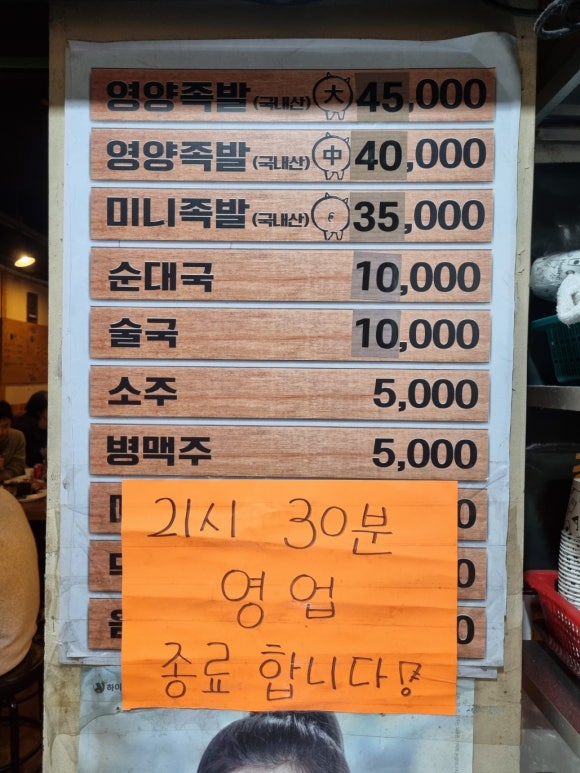 영양족발 (국내산) 大 45,000
영양족발 (국내산) 中 40,000
미니족발 (국내산) 小 35,000
순대국 10,000
술국 10,000
소주 5,000
병맥주 5,000
0
21시 30분
0
영업
0
종료 합니다!
하이